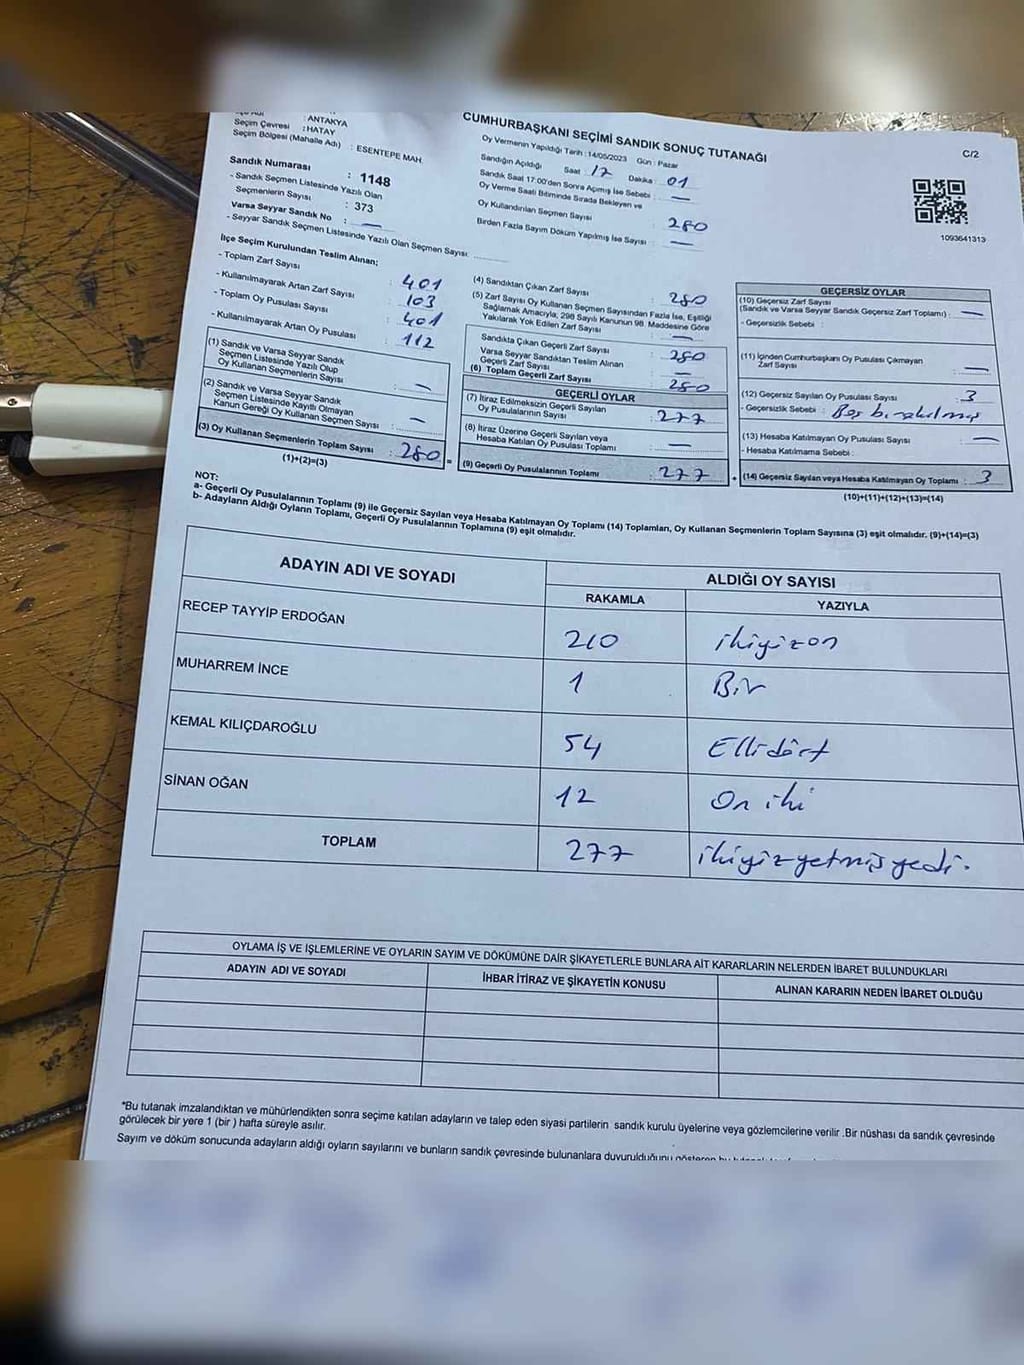 : ANTAKYA
Seçim Çevresi : HATAY
Seçim Bölgesi (Mahalle Adı) : ESENTEPE MAH.
Sandık Numarası : 1148
- Sandık Seçmen Listesinde Yazılı Olan
Seçmenlerin Sayısı : 373
Varsa Seyyar Sandık No : —
- Seyyar Sandık Seçmen Listesinde Yazılı Olan Seçmen Sayısı:
CUMHURBAŞKANI SEÇİMİ SANDIK SONUÇ TUTANAĞI
C/2
Oy Vermenin Yapıldığı Tarih : 14/05/2023 Gün : Pazar
Sandığın Açıldığı Saat : 17 Dakika : 01
Sandık Saat 17:00'den Sonra Açılmış İse Sebebi : —
Oy Verme Saati Bitiminde Sırada Bekleyen ve
Oy Kullandırılan Seçmen Sayısı : 280
Birden Fazla Sayım Döküm Yapılmış İse Sayısı : —
1093641313
İlçe Seçim Kurulundan Teslim Alınan;
- Toplam Zarf Sayısı : 401
- Kullanılmayarak Artan Zarf Sayısı : 103
- Toplam Oy Pusulası Sayısı : 401
- Kullanılmayarak Artan Oy Pusulası : 112
(1) Sandık ve Varsa Seyyar Sandık
Seçmen Listesinde Yazılı Olup
Oy Kullanan Seçmenlerin Sayısı : —
(2) Sandık ve Varsa Seyyar Sandık
Seçmen Listesinde Kayıtlı Olmayan
Kanun Gereği Oy Kullanan Seçmen Sayısı : —
(3) Oy Kullanan Seçmenlerin Toplam Sayısı : 280
(1)+(2)=(3)
(4) Sandıktan Çıkan Zarf Sayısı : 280
(5) Zarf Sayısı Oy Kullanan Seçmen Sayısından Fazla İse, Eşitliği
Sağlamak Amacıyla, 298 Sayılı Kanunun 98. Maddesine Göre
Yakılarak Yok Edilen Zarf Sayısı : —
Sandıkta Çıkan Geçerli Zarf Sayısı : 280
Varsa Seyyar Sandıktan Teslim Alınan
Geçerli Zarf Sayısı : —
(6) Toplam Geçerli Zarf Sayısı : 280
GEÇERLİ OYLAR
(7) İtiraz Edilmeksizin Geçerli Sayılan
Oy Pusulalarının Sayısı : 277
(8) İtiraz Üzerine Geçerli Sayılan veya
Hesaba Katılan Oy Pusulası Toplamı : —
= (9) Geçerli Oy Pusulalarının Toplamı : 277
GEÇERSİZ OYLAR
(10) Geçersiz Zarf Sayısı
(Sandık ve Varsa Seyyar Sandık Geçersiz Zarf Toplamı) : —
- Geçersizlik Sebebi :
(11) İçinden Cumhurbaşkanı Oy Pusulası Çıkmayan
Zarf Sayısı : —
(12) Geçersiz Sayılan Oy Pusulası Sayısı : 3
- Geçersizlik Sebebi : Boş bırakılmış
(13) Hesaba Katılmayan Oy Pusulası Sayısı : —
- Hesaba Katılmama Sebebi :
+ (14) Geçersiz Sayılan veya Hesaba Katılmayan Oy Toplamı : 3
(10)+(11)+(12)+(13)=(14)
NOT:
a- Geçerli Oy Pusulalarının Toplamı (9) ile Geçersiz Sayılan veya Hesaba Katılmayan Oy Toplamı (14) Toplamları, Oy Kullanan Seçmenlerin Toplam Sayısına (3) eşit olmalıdır. (9)+(14)=(3)
b- Adayların Aldığı Oyların Toplamı, Geçerli Oy Pusulalarının Toplamına (9) eşit olmalıdır.
ADAYIN ADI VE SOYADI
ALDIĞI OY SAYISI
RAKAMLA YAZIYLA
RECEP TAYYİP ERDOĞAN 210 ikiyüzon
MUHARREM İNCE 1 Bir
KEMAL KILIÇDAROĞLU 54 Ellidört
SİNAN OĞAN 12 On iki
TOPLAM 277 ikiyüzyetmişyedi.
OYLAMA İŞ VE İŞLEMLERİNE VE OYLARIN SAYIM VE DÖKÜMÜNE DAİR ŞİKAYETLERLE BUNLARA AİT KARARLARIN NELERDEN İBARET BULUNDUKLARI
ADAYIN ADI VE SOYADI İHBAR İTİRAZ VE ŞİKAYETİN KONUSU ALINAN KARARIN NEDEN İBARET OLDUĞU
*Bu tutanak imzalandıktan ve mühürlendikten sonra seçime katılan adayların ve talep eden siyasi partilerin sandık kurulu üyelerine veya gözlemcilerine verilir .Bir nüshası da sandık çevresinde
görülecek bir yere 1 (bir ) hafta süreyle asılır.
Sayım ve döküm sonucunda adayların aldığı oyların sayılarını ve bunların sandık çevresinde bulunanlara duyurulduğunu gösteren bu